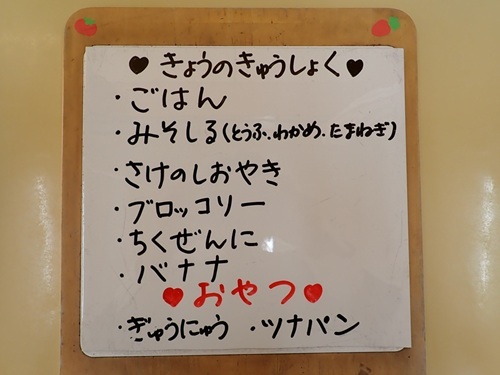 ♥きょうのきゅうしょく♥
・ごはん
・みそしる(とうふ.わかめ.たまねぎ)
・さけのしおやき
・ブロッコリー
・ちくぜんに
・バナナ
♥おやつ♥
・ぎゅうにゅう ・ツナパン